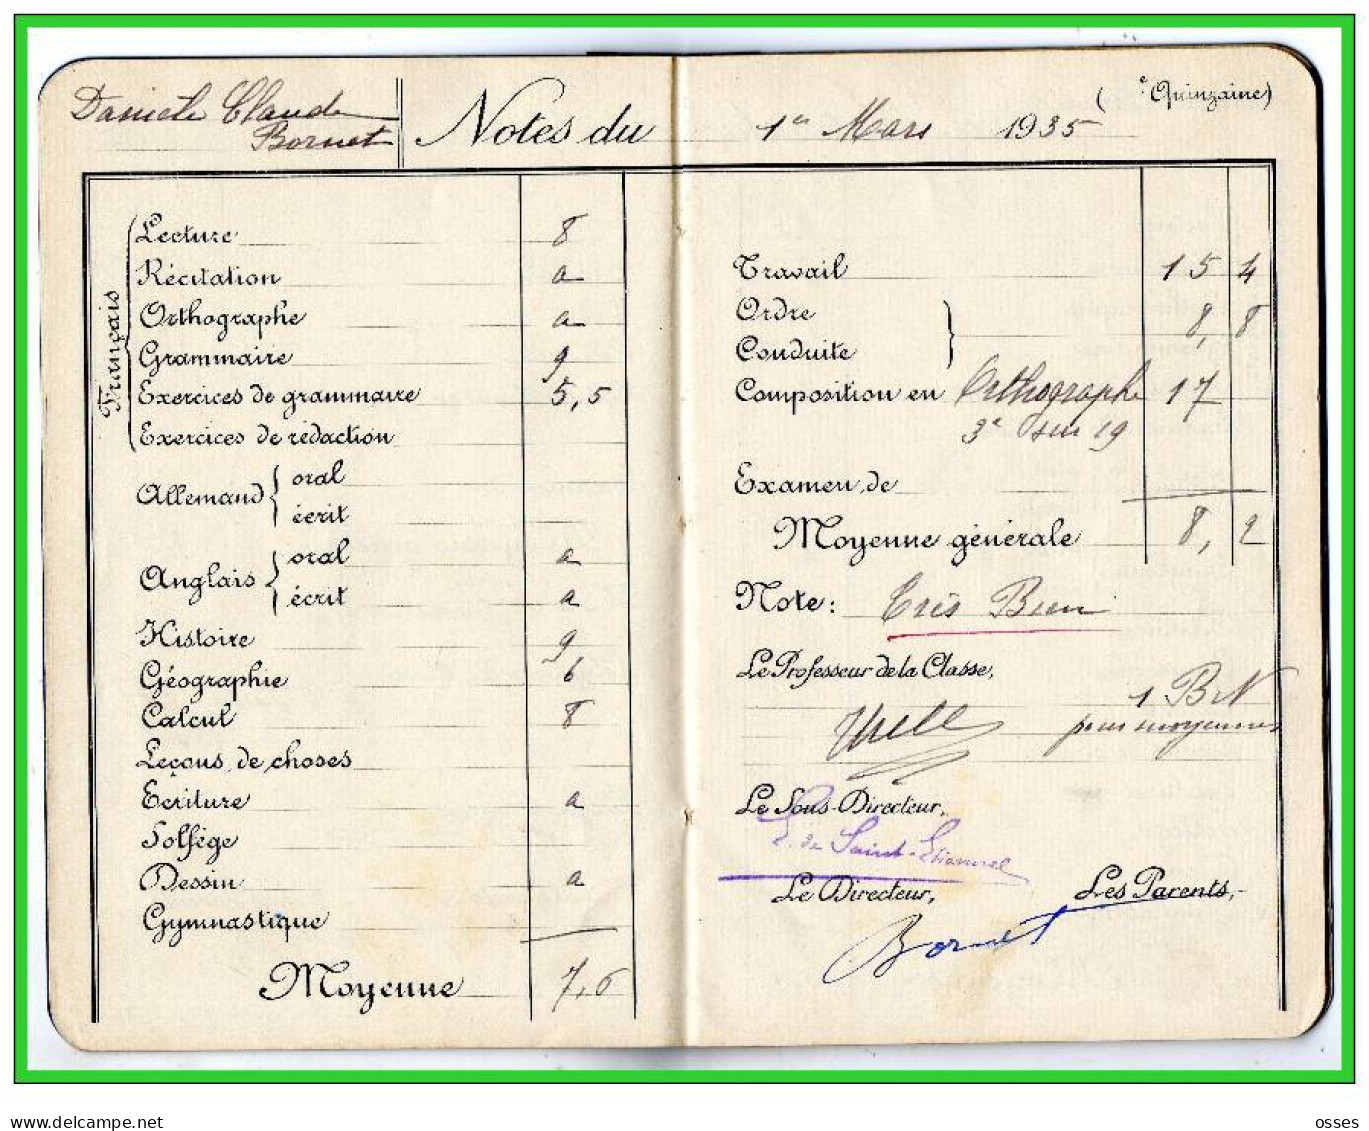 Danièle Claude
Bornet
Notes du 1er Mars 1935
( e Quinzaine)
Français
Lecture 8
Récitation a
Orthographe a
Grammaire 9
Exercices de grammaire 5,5
Exercices de rédaction
Allemand
oral
écrit
Anglais
oral a
écrit a
Histoire 9
Géographie 6
Calcul 8
Leçons de choses
Ecriture a
Solfège
Dessin a
Gymnastique
Moyenne 7,6
Travail 15 4
Ordre
Conduite 8, 8
Composition en Orthographe 17
3e sur 19
Examen de
Moyenne générale 8, 2
Note: Très Bien
Le Professeur de la Classe,
1 BN
pour moyennes
Le Sous-Directeur,
de Saint-Etienne
Le Directeur,
Les Parents,
Bornet
delcampe.net
osses